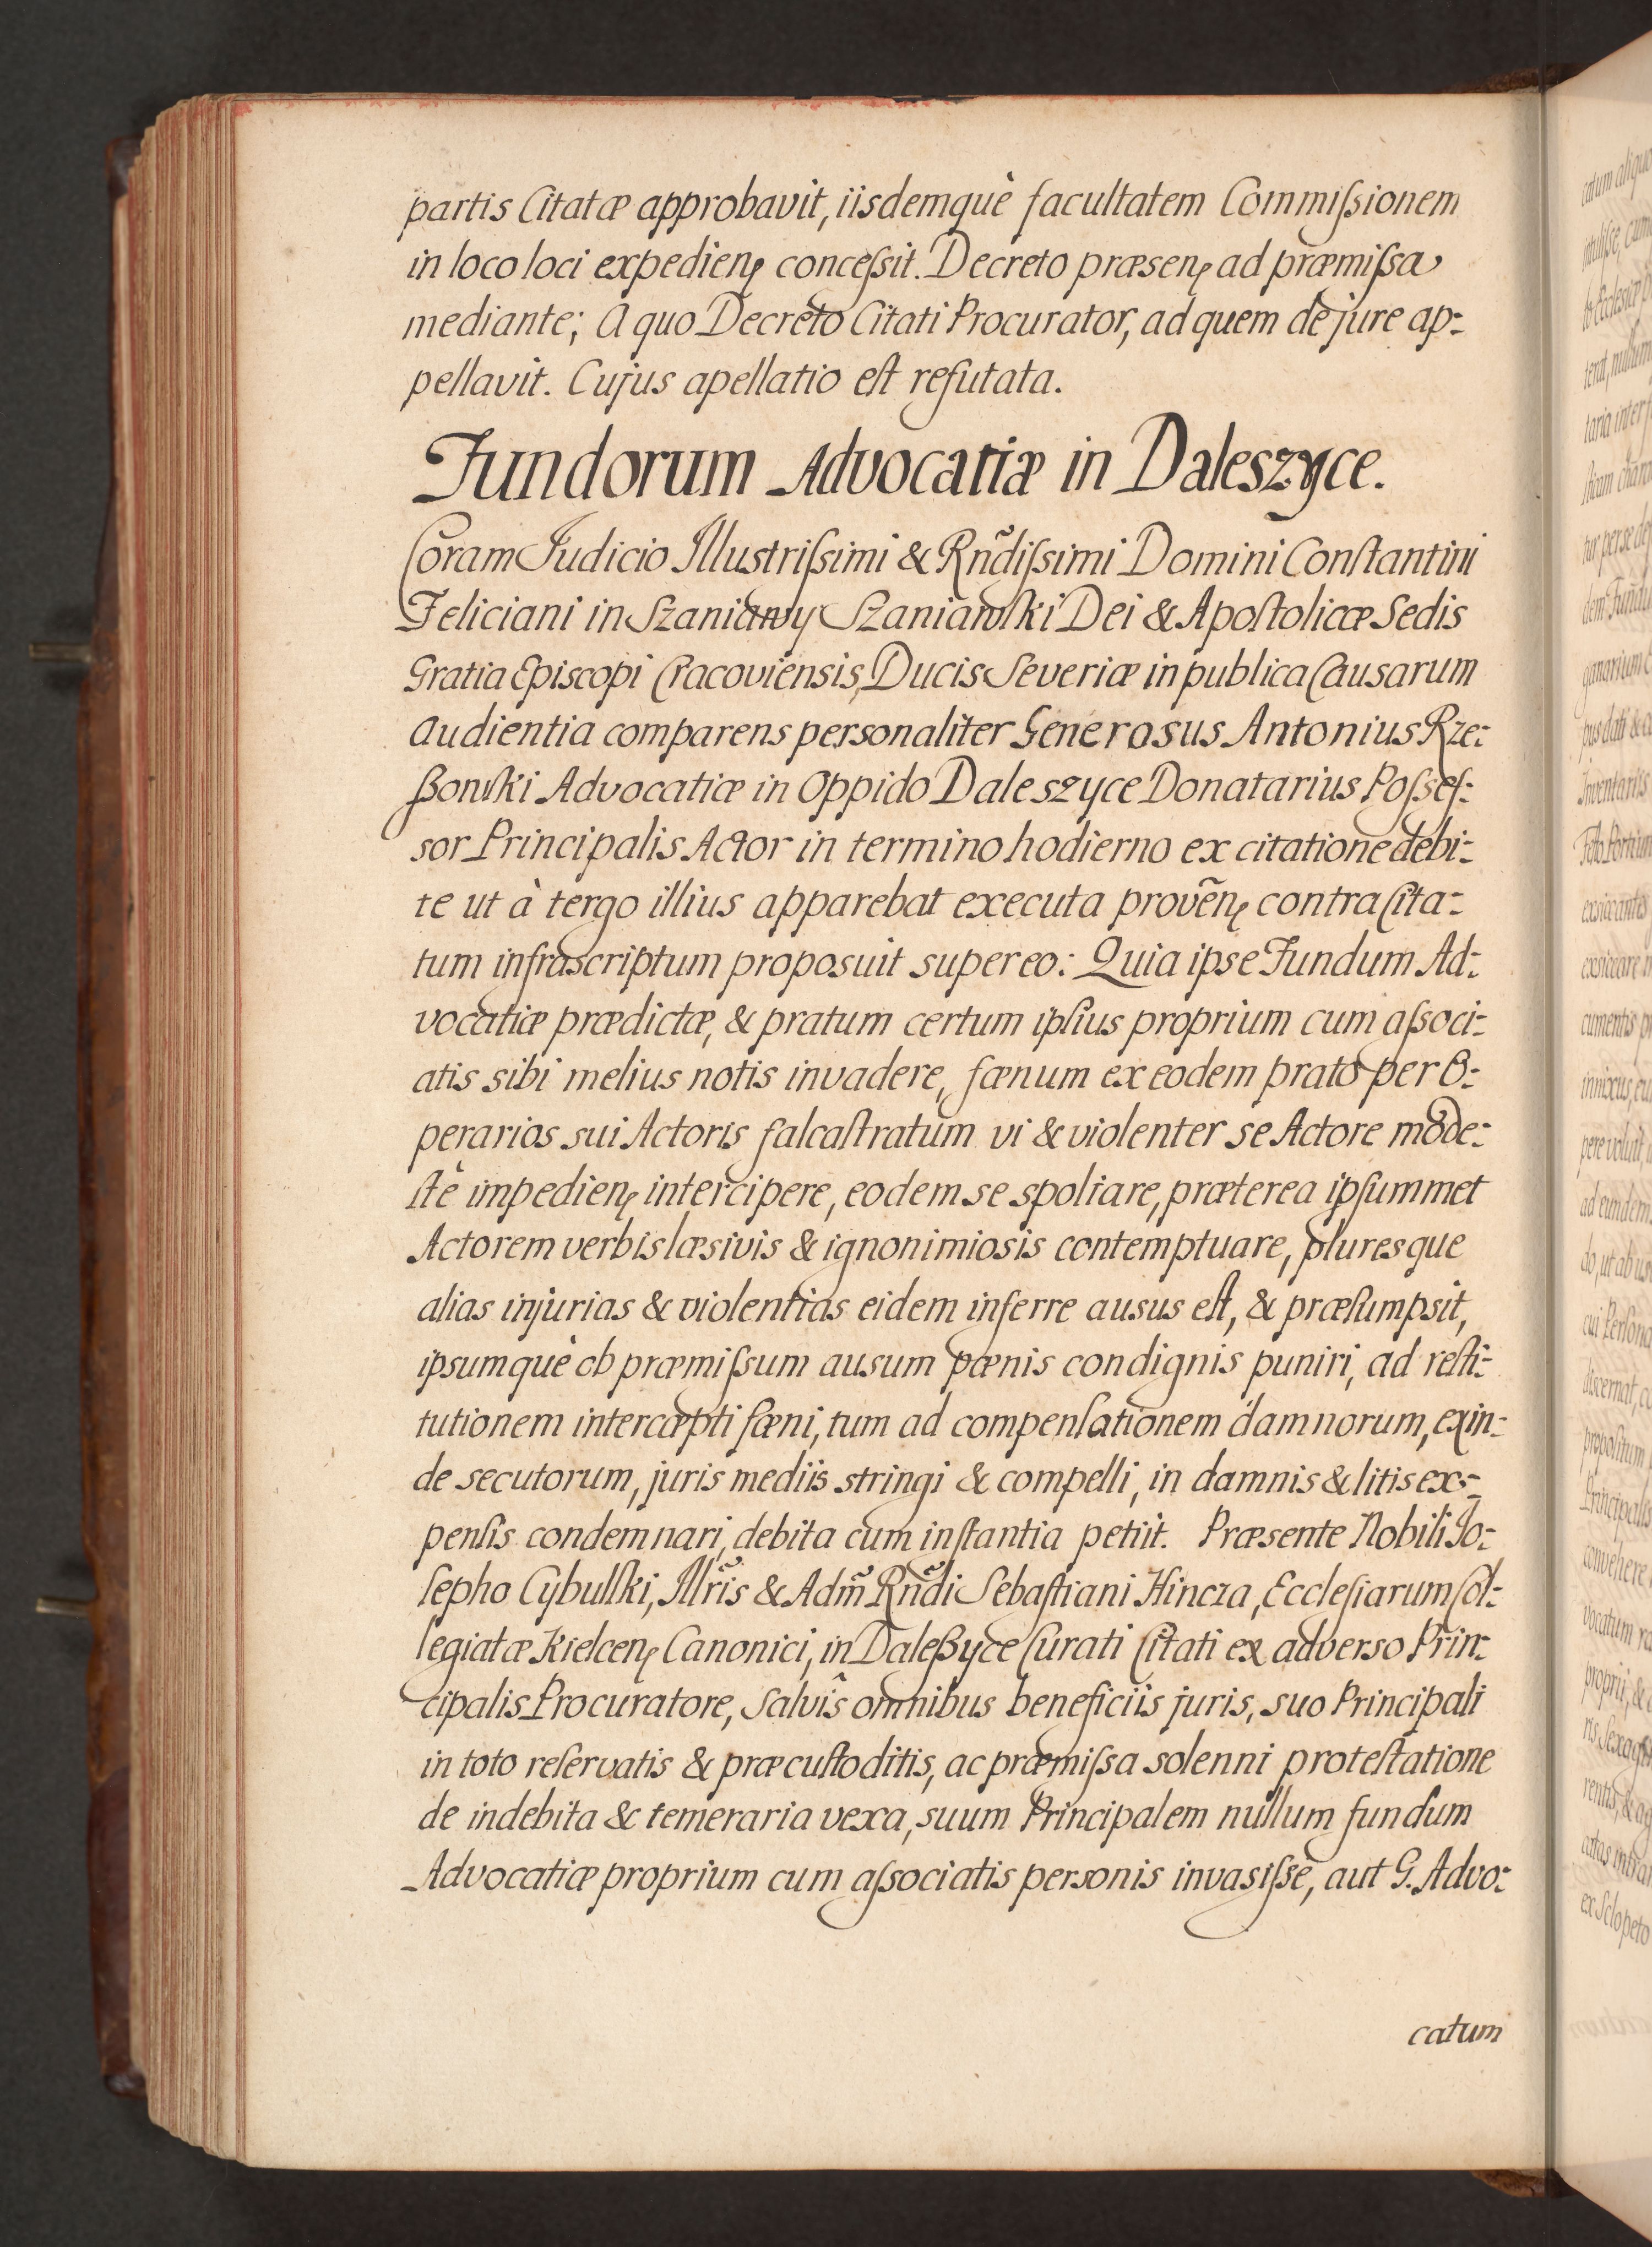 partis Citatæ approbavit, iisdemquè facultatem Commiſsionem
in loco loci expedienꝭ conceſsit. Decreto præsenꝭ ad præmiſsa
mediante; A quo Decreto Citati Procurator, ad quem de jure ap-
pellavit. Cujus apellatio eſt refutata.
Fundorum Advocatiæ in Daleszyce.
Coram Judicio Illustriſsimi & Rñdiſsimi Domini Conſtantini
Feliciani in Szaniawy Szaniawſki Dei & Apoſtolicæ Sedis
Gratia Episcopi Cracoviensis, Ducis Severiæ in publica Causarum
Audientia comparens personaliter Generosus Antonius Rze-
ßonſki Advocatiæ in Oppido Daleszyce Donatarius Poſseſ-
sor Principalis Actor in termino hodierno ex citatione debi-
te ut à tergo illius apparebat executa provẽnꝭ contra Cita-
tum infrascriptum proposuit super eo: Quia ipse Fundum Ad-
vocatiæ prædictæ, & pratum certum ipſius proprium cum aſsoci-
atis sibi melius notis invadere, fœnum ex eodem prato per O-
perarios sui Actoris falcaſtratum vi & violenter se Actore mode-
ſtè impedienꝭ intercipere, eodem se spoliare, præterea ipſummet
Actorem verbis læsivis & ignonimiosis contemptuare, pluresque
alias injurias & violentias eidem inferre ausus eſt, & præſumpsit,
ipsumquè ob præmiſsum ausum pœnis condignis puniri, ad reſti-
tutionem intercæpti fœni, tum ad compenſationem damnorum, exin-
de secutorum, juris mediis stringi & compelli, in damnis & litis ex-
penſis condemnari, debita cum inſtantia petiit. Præsente Nobili Jo-
ſepho Cybulſki, Illr̃is & Adm̃ Rñdi Sebaſtiani Hincza, Eccleſiarum Col-
legiatæ Kielcenꝭ Canonici, in Daleßyce Curati Citati ex adverso Prin-
cipalis Procuratore, Salvîs omnibus beneficiis juris, suo Principali
in toto reſervatis & præcuſtoditis, ac præmiſsa solenni proteſtatione
de indebita & temeraria vexa, suum Principalem nullum fundum
Advocatiæ proprium cum aſsociatis personis invasiſse, aut G. Advo-
catum